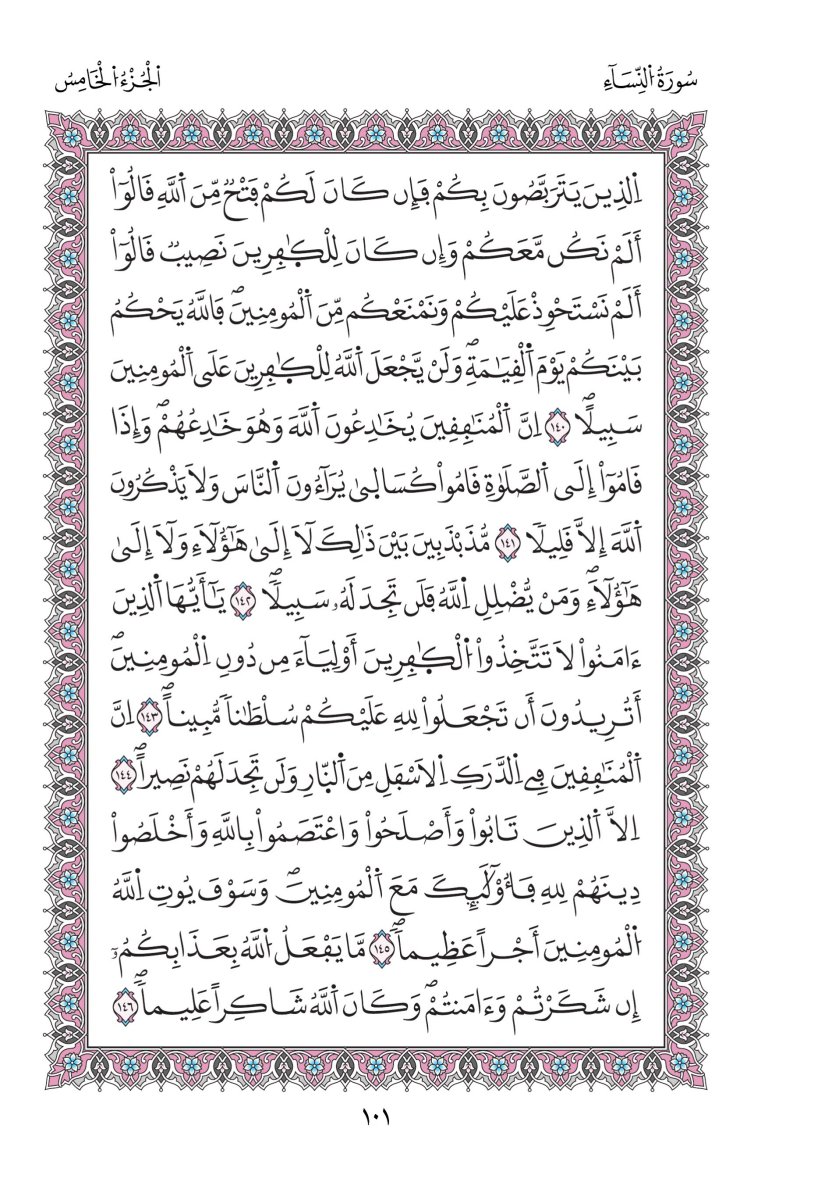 سُورَةُ النِّسَآءِ
اَلْجُزْءُ الْخَامِسُ
اِ۬لذِينَ يَتَرَبَّصُونَ بِكُمْ فَإِن كَانَ لَكُمْ فَتْحٞ مِّنَ اَ۬للَّهِ قَالُوٓاْ
أَلَمْ نَكُن مَّعَكُمْ وَإِن كَانَ لِلْكٰ۪فِرِينَ نَصِيبٞ قَالُوٓاْ
أَلَمْ نَسْتَحْوِذْ عَلَيْكُمْ وَنَمْنَعْكُم مِّنَ اَ۬لْمُومِنِينَۖ فَاللَّهُ يَحْكُمُ
بَيْنَكُمْ يَوْمَ اَ۬لْقِيَٰمَةِۖ وَلَنْ يَّجْعَلَ اَ۬للَّهُ لِلْكٰ۪فِرِينَ عَلَى اَ۬لْمُومِنِينَ
سَبِيلًاۖ ١٤٠ اِنَّ اَ۬لْمُنَٰفِقِينَ يُخَٰدِعُونَ اَ۬للَّهَ وَهُوَ خَٰدِعُهُمْۖ وَإِذَا
قَامُوٓاْ إِلَى اَ۬لصَّلَوٰةِ قَامُواْ كُسَالۭيٰ يُرَآءُونَ اَ۬لنَّاسَ وَلَا يَذْكُرُونَ
اَ۬للَّهَ إِلَّا قَلِيلٗا ١٤١ مُّذَبْذَبِينَ بَيْنَ ذَٰلِكَ لَآ إِلَىٰ هَٰٓؤُلَآءِ وَلَآ إِلَىٰ
هَٰٓؤُلَآءِۖ وَمَنْ يُّضْلِلِ اِ۬للَّهُ فَلَن تَجِدَ لَهُۥ سَبِيلٗاۖ ١٤٢ يَٰٓأَيُّهَا اَ۬لذِينَ
ءَامَنُواْ لَا تَتَّخِذُواْ اُ۬لْكٰ۪فِرِينَ أَوْلِيَآءَ مِن دُونِ اِ۬لْمُومِنِينَۖ
أَتُرِيدُونَ أَن تَجْعَلُواْ لِلهِ عَلَيْكُمْ سُلْطَٰناٗ مُّبِيناًۖ ١٤٣ اِنَّ
اَ۬لْمُنَٰفِقِينَ فِي اِ۬لدَّرَكِ اِ۬لَاسْفَلِ مِنَ اَ۬لنّ۪ارِ وَلَن تَجِدَ لَهُمْ نَصِيراًۖ ١٤٤
اِلَّا اَ۬لذِينَ تَابُواْ وَأَصْلَحُواْ وَاعْتَصَمُواْ بِاللَّهِ وَأَخْلَصُواْ
دِينَهُمْ لِلهِ فَأُوْلَٰٓئِكَ مَعَ اَ۬لْمُومِنِينَۖ وَسَوْفَ يُوتِ اِ۬للَّهُ
اُ۬لْمُومِنِينَ أَجْراً عَظِيماٗۖ ١٤٥ مَّا يَفْعَلُ اُ۬للَّهُ بِعَذَابِكُمُۥٓ
إِن شَكَرْتُمْ وَءَامَنتُمْۖ وَكَانَ اَ۬للَّهُ شَاكِراً عَلِيماٗۖ ١٤٦
١٠١